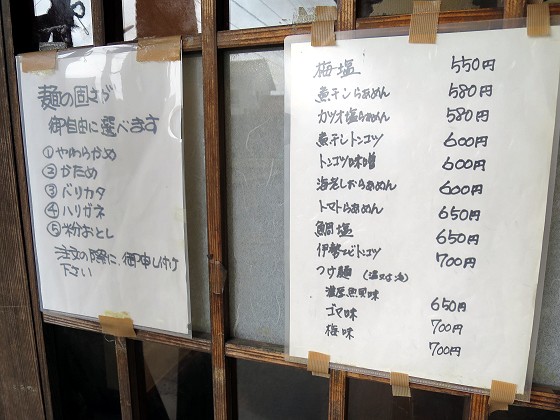 麺の固さが
御自由に選べます
①やわらかめ
②かため
③バリカタ
④ハリガネ
⑤粉おとし
注文の際に、御申し付け
下さい
梅塩 550円
魚干しらぁめん 580円
カツオ塩らぁめん 580円
魚干しトンコツ 600円
トンコツ味噌 600円
海老しおらぁめん 600円
トマトらぁめん 650円
鯛塩 650円
伊勢エビトンコツ 700円
つけ麺 (温又は冷)
濃厚魚貝味 650円
ゴマ味 700円
梅味 700円